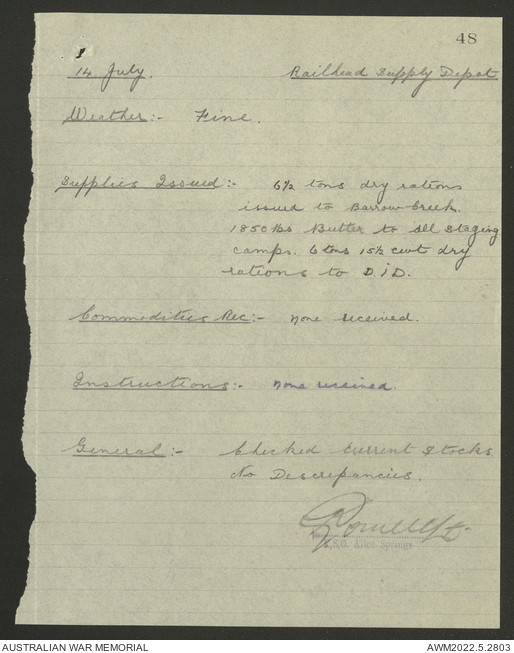 48
14 July. Railhead Supply Depot
Weather:- Fine.
Supplies Issued:- 6½ tons dry rations
issued to Barrow Creek.
1850 lbs Butter to all staging
camps. 6 tons 15½ cwt dry
rations to D.I.D.
Commodities Rec:- none received.
Instructions:- none received.
General:- Checked current stocks.
No Discrepancies.
S.S.O. Alice Springs
AUSTRALIAN WAR MEMORIAL AWM2022.5.2803